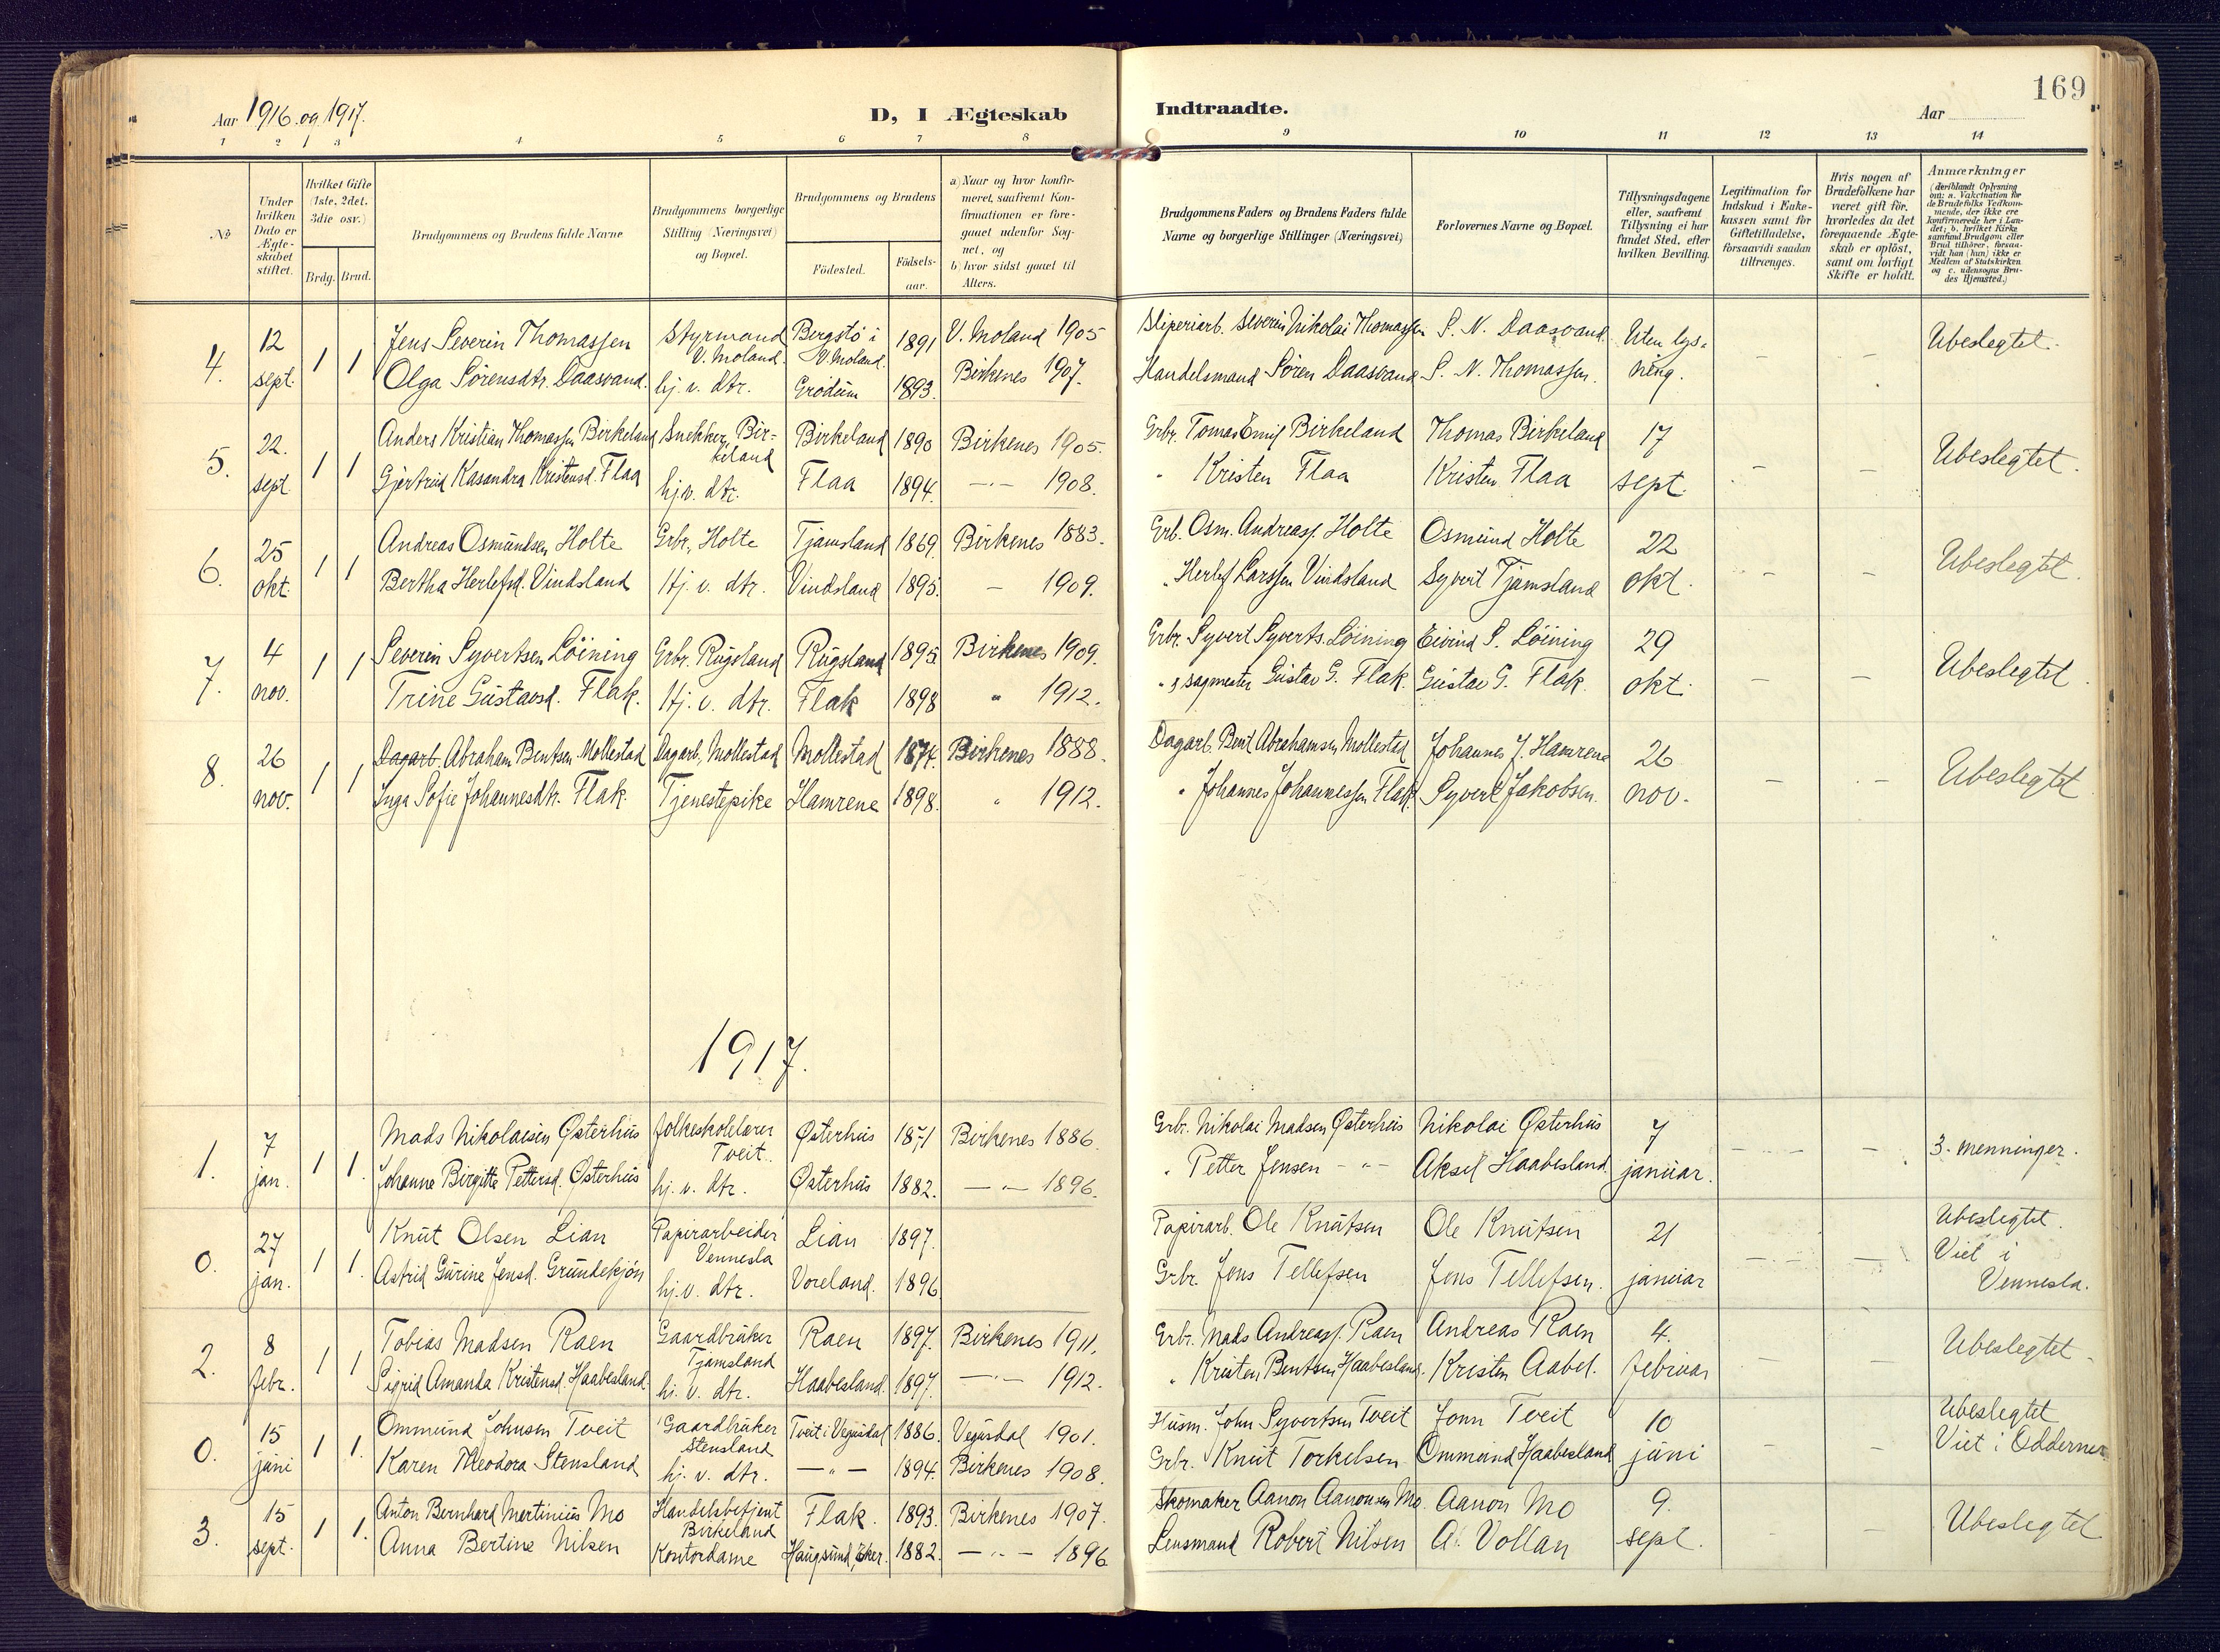 169
Aar 1916 og 1917.
D, I Ægteskab
Indtraadte.
Aar
1 2 3 4 5 6 7 8
9 10 11 12 13 14
№
Under hvilken Dato er Ægteskabet stiftet.
Hvilket Gifte (1ste, 2det, 3die osv.)
Brdg. Brud.
Brudgommens og Brudens fulde Navne
Brudgommens borgerlige Stilling (Næringsvei) og Bopæl.
Brudgommens og Brudens
Födested.
Födselsaar.
a) Naar og hvor konfirmeret, saafremt Konfirmationen er foregaaet udenfor Sognet, og
b) hvor sidst gaaet til Alters.
Brudgommens Faders og Brudens Faders fulde Navne og borgerlige Stillinger (Næringsvei)
Forlovernes Navne og Bopæl.
Tillysningsdagene eller, saafremt Tillysning ei har fundet Sted, efter hvilken Bevilling.
Legitimation for Indskud i Enkekassen samt for Giftetilladelse, forsaavidt saadan tiltrænges.
Hvis nogen af Brudefolkene har været gift før, hvorledes da det foregaaende Ægteskab er opløst, samt om lovligt Skifte er holdt.
Anmærkninger (deriblandt Oplysning om: a. Vakcination for de Brudefolks Vedkommende, der ikke ere konfirmerede her i Landet; b. hvilket Kirkesamfund Brudgom eller Brud tilhører, forsaavidt han (hun) ikke er Medlem af Statskirken og c. udensogns Brudes Hjemsted.)
4. 12 sept. 1 1
Jens Severin Thomassen Styrmand V. Moland. Bergstø i V. Moland. 1891 V. Moland 1905 Sliperiarb. Severin Nikolai Thomassen S. N. Daasvand. Uten lys- – – Ubeslegtet.
Olga Sørensdtr. Daasvand. hj. v. dtr. Grødum 1893. Birkenes 1907. Handelsmand Søren Daasvand S. N. Thomassen. ning.
5. 22. sept. 1 1
Anders Kristian Thomassen Birkeland Snekker, Birkeland Birkeland 1890 Birkenes 1905. Grbr. Tomas Emil Birkeland Thomas Birkeland 17 – – Ubeslegtet.
Gjertrud Kasandra Kristensd. Flaa hj. v. dtr. Flaa 1894. –"– 1908. " Kristen Flaa Kristen Flaa sept.
6. 25 okt. 1 1
Andreas Osmundsen Holte Grbr., Holte Tjamsland 1869. Birkenes 1883. Grb. Osm. Andreass. Holte Osmund Holte 22 – – Ubeslegtet.
Bertha Herlefsd. Vindsland Hj. v. dtr. Vindsland 1895. – 1909. " Herlef Larssen Vindsland Syvert Tjamsland okt.
7. 4 nov. 1 1
Severin Syvertsen Löining Grbr. Rugsland Rugsland 1895. Birkenes 1909. Grbr. Syvert Syverts. Löining Eivind S. Löining 29 – – Ubeslegtet.
Trine Gustavsd. Flak. Hj. v. dtr. Flak 1898 " 1912. " sagmester Gustav G. Flak. Gustav G. Flak. okt.
8. 26 nov. 1 1
Dagarb. Abraham Bentsen Mollestad Dagarb., Mollestad Mollestad 1874. Birkenes 1888. Dagarb. Bent Abrahamsen Mollestad Johannes J. Hamrene 26 – – Ubeslegtet
Inga Sofie Johannesdtr. Flak. Tjenestepike Hamrene 1898. " 1912. " Johannes Johannessen Flak Syvert Jakobsen. nov.
1917.
1. 7 jan. 1 1.
Mads Nikolaisen Østerhus folkeskolelærer Tveit. Østerhus 1871 Birkenes 1886. Grbr. Nikolai Madsen Østerhus Nikolai Østerhus 7 – – – 3-menninger.
Johanne Birgitte Pettersd. Østerhus hj. v. dtr. Østerhus 1882. –"– 1896. " Petter Jensen –"– Aksel Haabesland. januar.
0. 27 jan. 1 1.
Knut Olsen Lian Papirarbeider Vennesla Lian 1897. Papirarb. Ole Knutsen Ole Knutsen 21 – – – Ubeslegtet.
Astrid Gurine Jensd. Grundekjøn hj. v. dtr. Voreland. 1896 Grbr. Jens Tellefsen Jens Tellefsen. januar Viet i Vennesla.
2. 8 febr. 1 1
Tobias Madsen Raen Gaardbruker Tjamsland Raen 1897. Birkenes 1911. Grbr. Mads Andreass. Raen Andreas Raen 4. – – Ubeslegtet
Sigrid Amanda Kristensd. Haabesland hj. v. dtr. Haabesland. 1897. –"– 1912. " Kristen Bentsen Haabesland. Kristen Aabel. februar
0. 15 juni 1 1.
Ommund Johnsen Tveit Gaardbruker Stensland Tveit i Vegusdal 1886. Vegusdal 1901. Husm. John Syvertsen Tveit Jonn Tveit 10 – – Ubeslegtet
Karen Theodora Stensland hj. v. dtr. –"– 1894. Birkenes 1908. Grbr. Knut Torkelsen Ommund Haabesland juni Viet i Oddernes
3. 15 sept. 1 1.
Anton Bernhard Martinius Mo Handelsbetjent Birkeland Flak. 1893. Birkenes 1907. Skomaker Aanon Aanonsen Mo. Aanon Mo 9. – – Ubeslegtet
Anna Bertine Nilsen Kontordame Haugsund, Eker. 1882. –"– 1896 Lensmand Robert Nilsen A. Vollan sept.